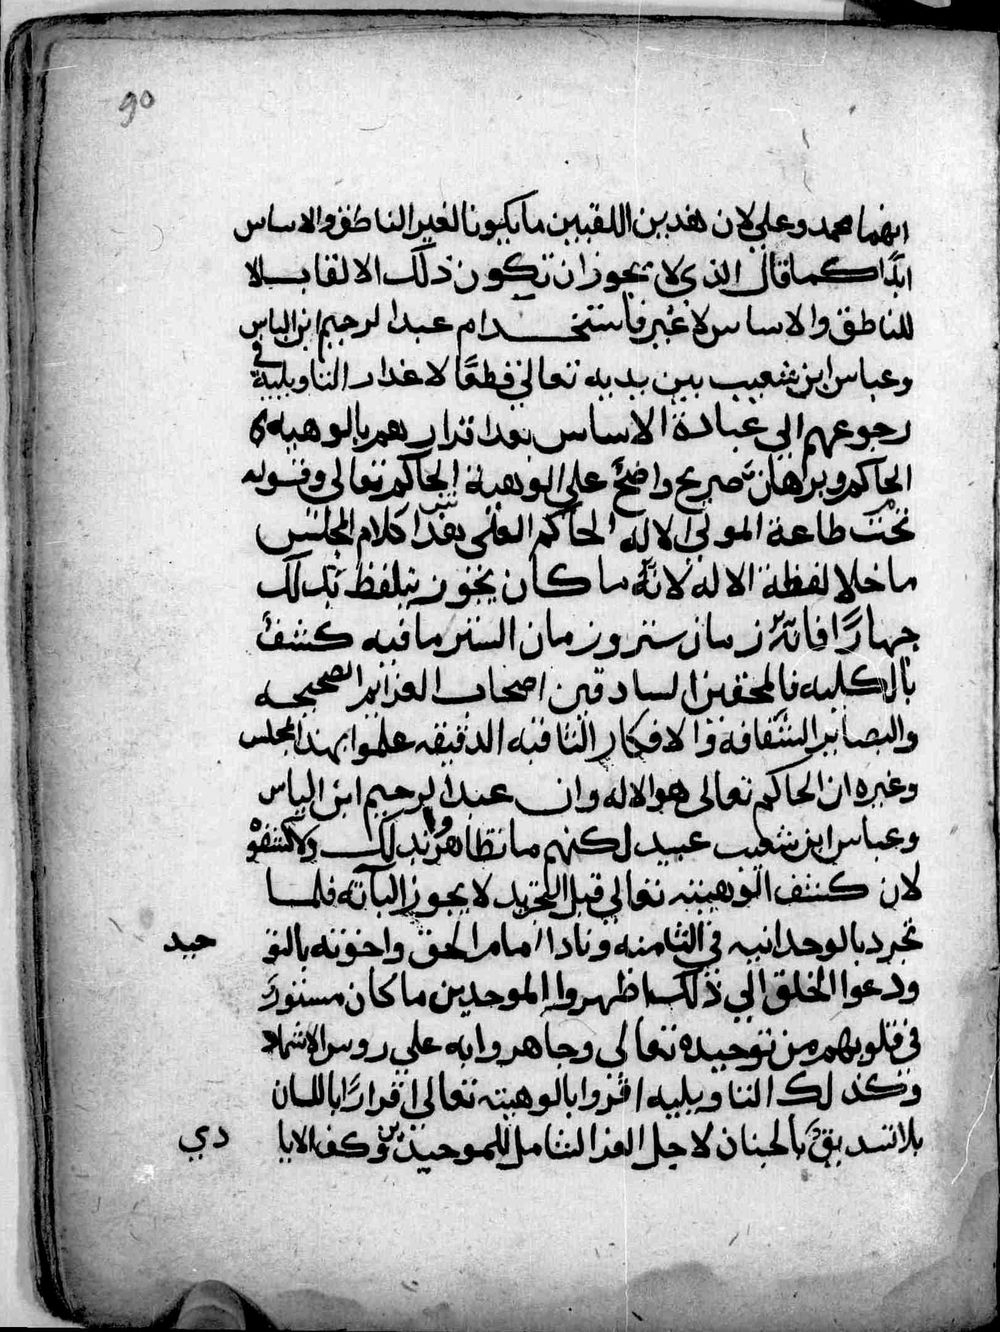 90
انهما محمد وعلي لان هذين اللقبين ما يكونا لغير الناطق والاساس
ابدًا كما قال الذي لا يجوز ان تكون ذلك الالقاب الا
للناطق والاساس لا غير فاستخدام عبد الرحيم ابن الياس
وعباس ابن شعيب بين يديه تعالي قطعًا لاعذار التاويليه في
رجوعهم الي عبادة الاساس بعد اقرارهم بالوهيه
الحاكم وبرهان صريح واضح علي الوهية الحاكم تعالى وقوله
تحت طاعة المولى الاله الحاكم العلي بقدا كلام المجلس
ما خلا لفظة الاله لانه ما كان يجوز يتلفظ بذلك
جهارًا فانه زمان ستر وزمان الستر ما فيه كشف
بالكليه فالمحقين السادقين اصحاب العزايم الصحيحه
والبصاير الشفافة والافكار الثاقبه الدقيقه علموا بهذا المجلس
وغيره ان الحاكم تعالى هو الاله وان عبد الرحيم ابن الياس
وعباس ابن شعيب عبيد لكنهم ما تظاهروا بذلك ولا كشفوه
لان كشف الوهيته تعالي قبل التجريد لا يجوز البآته فلما
تجرد بالوحدانيه في الثامنه ونادا امام الحق واخوته بالتو
حيد
ودعوا الخلق الي ذلك اظهروا الموحدين ما كان مستور
في قلوبهم من توحيده تعالى وجاهروا به علي روس الاشهاد
وكذلك التاويليه اقروا بالوهيته تعالى اقرارًا باللسان
بلا تسديق بالجنان لاجل العز الشامل للموحيدين وكف الايا
دي